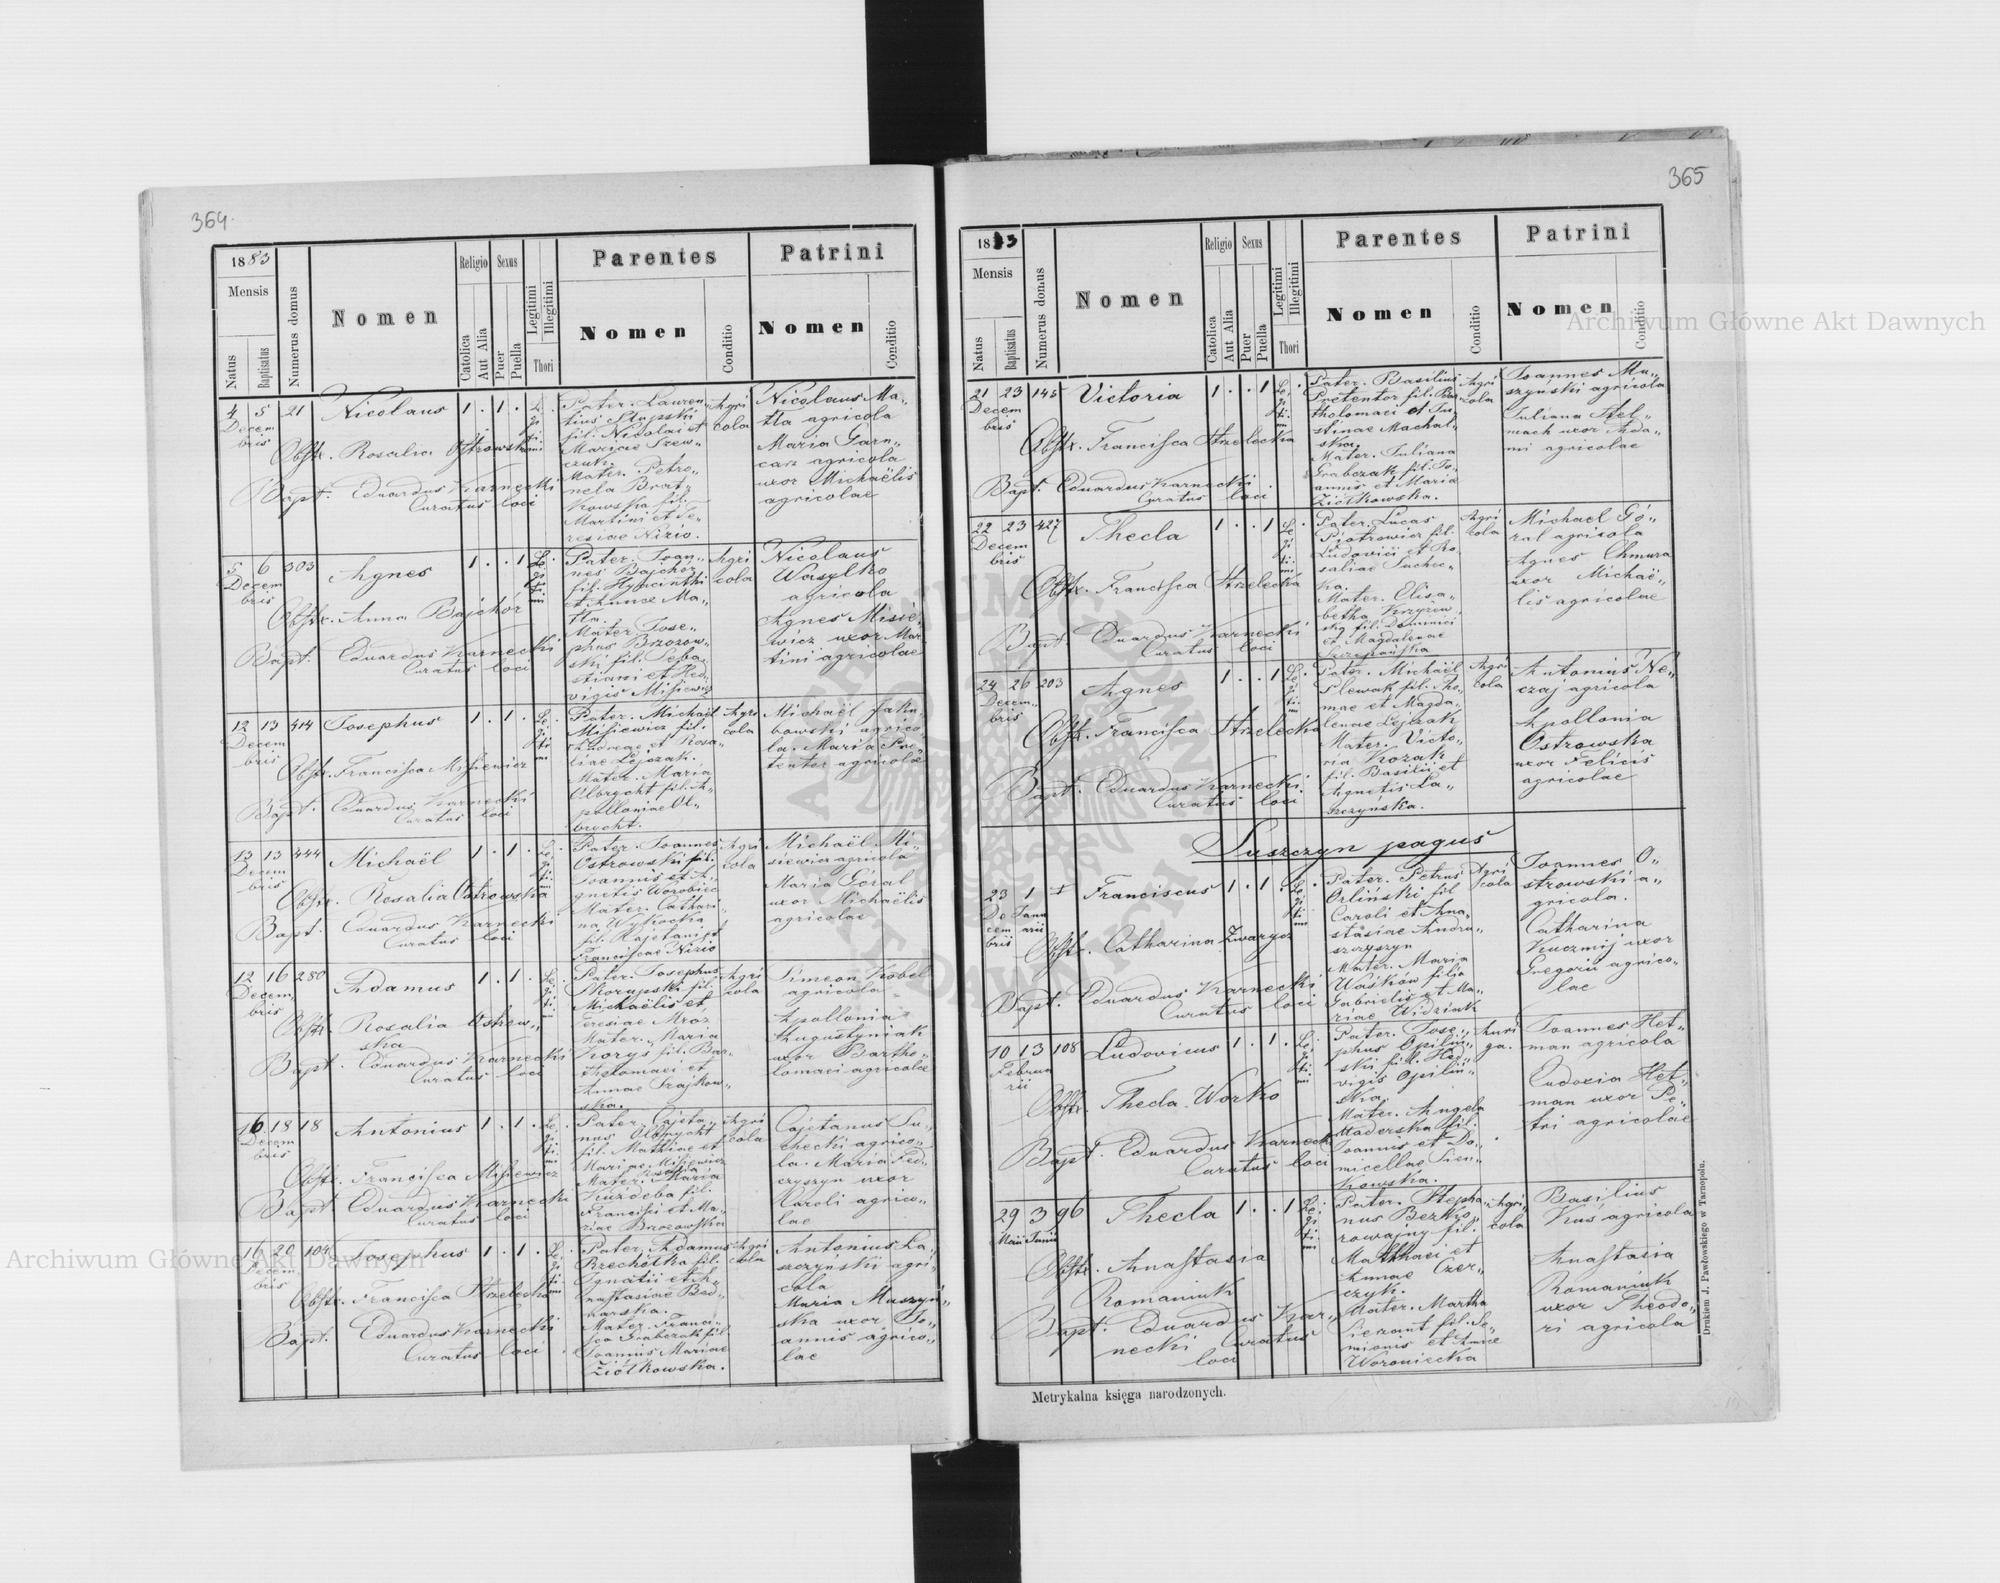 364.
1883
Mensis
Natus
Baptisatus
Numerus domus
Nomen
Religio
Catholica
Aut Alia
Sexus
Puer
Puella
Legitimi
Illegitimi
Thori
Parentes
Nomen
Conditio
Patrini
Nomen
Conditio
4 5 21 Nicolaus 1 . 1 .
Decem
bris
Obstx. Rosalia Ostrowska
Bapt. Eduardus Karnecki
Curatus loci
Pater. Lauren„
tius Slupski
fil. Nicolai et
Mariae Szew„
czuk.
Mater. Petro„
nela Brat„
kowska fil.
Martini et Te„
resiae Nizio.
Agri
cola
Nicolaus Ma„
tla agricola
Maria Garn„
carz agricola
uxor Michaëlis
agricolae
5 6 303 Agnes 1 . . 1
Decem
bris
Obstx. Anna Bajchór
Bapt. Eduardus Karnecki
Curatus loci
Pater. Joan„
nes Bajchór
fil. Hyacinthi
et Annae Ma„
tla.
Mater. Jose„
phus Brzozow„
ski fil. Seba„
stiani et Hed„
vigis Misiewicz
Agri
cola
Nicolaus
Wasylko
agricola
Agnes Misie„
wicz uxor Mar„
tini agricolae
12 13 414 Josephus 1 . 1 .
Decem
bris
Obstx. Francisca Misiewicz
Bapt. Eduardus Karnecki
Curatus loci
Pater. Michaël
Misiewicz fil.
Andreae et Rosa„
liae Lejczak.
Mater. Maria
Olbrycht fil. A„
polloniae Ol„
brycht.
Agri
cola
Michaël Jaku„
bowski agrico„
la. Maria Pre„
tentor agricolae
13 13 444 Michaël 1 . 1 .
Decem
bris
Obstx. Rosalia Ostrowska
Bapt. Eduardus Karnecki
Curatus loci
Pater. Joannes
Ostrowski fil.
Joannis et A„
gnetis Worobiec
Mater. Cathari„
na Wysocka
fil. Kajetani et
Franciscae Nizio
Agri
cola
Michaël Mi„
siewicz agricola
Maria Góral
uxor Michaëlis
agricolae
12 16 280 Adamus 1 . 1 .
Decem
bris
Obstx. Rosalia Ostrow„
ska
Bapt. Eduardus Karnecki
Curatus loci
Pater. Josephus
Skorupski fil.
Michaëlis et
Teresiae Mróz
Mater. Maria
Korys fil. Bar„
tholomaei et
Annae Szajkow„
ska.
Agri
cola
Simeon Kobel
agricola
Apollonia
Augustyniak
uxor Bartho„
lomaei agricolae
16 18 18 Antonius 1 . 1 .
Decem
bris
Obstx. Francisca Misiewicz
Bapt. Eduardus Karnecki
Curatus loci
Pater. Cajeta„
nus Olbrycht
fil. Mathiae et
Mariae Misiewicz
Mater. Maria
Kuźdeba fil.
Francisci et Ma„
riae Brzozowska
Agri
cola
Cajetanus Su„
checki agrico„
la. Maria Fed„
czyszyn uxor
Karoli agrico„
lae
16 20 104 Josephus 1 . 1 .
Decem
bris
Obstx. Francisca Strzelecka
Bapt. Eduardus Karnecki
Curatus loci
Pater. Adamus
Rzechótka fil.
Ignatii et A„
nastasiae Bed„
narska.
Mater. Franci„
sca Grabczak fil.
Joannis Mariae
Ziółkowska.
Agri
cola
Antonius La„
szczyński agri„
cola
Maria Muszyń„
ska uxor Jo„
annis agrico„
lae
365
1883
Mensis
Natus
Baptisatus
Numerus domus
Nomen
Religio
Catholica
Aut Alia
Sexus
Puer
Puella
Legitimi
Illegitimi
Thori
Parentes
Nomen
Conditio
Patrini
Nomen
Conditio
21 23 145 Victoria 1 . . 1
Decem
bris
Obstx. Francisca Strzelecka
Bapt. Eduardus Karnecki
Curatus loci
Pater. Basilius
Pretentor fil. Bar„
tholomaei et Ju„
stinae Machal„
ska.
Mater. Juliana
Grabczak fil. Jo„
annis et Maria
Ziółkowska.
Agri
cola
Joannes Mu„
szyński agricola
Juliana Stel„
mach uxor Ada„
mi agricolae
22 23 427 Thecla 1 . . 1
Decem
bris
Obstx. Francisca Strzelecka
Bapt. Eduardus Karnecki
Curatus loci
Pater. Lucas
Piotrowicz fil.
Ludovici et Ro„
saliae Suchec„
ka.
Mater. Elisa„
betha Krzyżew„
ska fil. Dominici
et Magdalenae
Szczepańska
Agri
cola
Michael Gó„
ral agricola
Agnes Chmura
uxor Michaë„
lis agricolae
24 26 203 Agnes 1 . . 1
Decem„
bris
Obstx. Francisca Strzelecka
Bapt. Eduardus Karnecki
Curatus loci
Pater. Michaël
Slewak fil. Tho„
mae et Magda„
lenae Lejczak
Mater. Victo„
ria Kozak
fil. Basilii et
Agnetis La„
szczyńska.
Agri
cola
Antonius Ne„
czaj agricola
Apollonia
Ostrowska
uxor Felicis
agricolae
Suszczyn pagus
23 1 + Franciscus 1 . 1 .
De Janu
cem arii
bris
Obstx. Catharina Zwarycz
Bapt. Eduardus Karnecki
Curatus loci
Pater. Petrus
Orliński fil
Caroli et Ana„
stasiae Andru„
szczyszyn
Mater. Maria
Waśków filia
Gabrielis et Ma„
riae Widziuk
Agri
cola
Joannes O„
strowski a„
gricola.
Catharina
Kuczmij uxor
Gregorii agrico„
lae
10 13 108 Ludovicus 1 . 1 .
Februa
rii
Obstx. Thecla Worko
Bapt. Eduardus Karnecki
Curatus loci
Pater. Jose„
phus Opiliń„
ski fil. Hed„
vigis Opiliń„
ska.
Mater. Angela
Maderska fil.
Joannis et Do„
micellae Sien„
kowska.
Auri
ga.
Joannes Het„
man agricola
Eudoxia Het„
man uxor Pe„
tri agricolae
29 3 96 Thecla 1 . . 1
Maii Junii
Obstx. Anastasia
Romaniuk
Bapt. Eduardus Kar„
necki Curatus
loci
Pater. Stepha„
nus Bezko„
rowajny fil.
Matthaei et
Annae Czer„
czyk.
Mater. Martha
Sierant fil. Se„
mionis et Annae
Woroniecka
Agri
cola
Basilius
Kuś agricola
Anastasia
Romaniuk
uxor Theodo„
ri agricola
Metrykalna księga narodzonych.
Drukiem J. Pawłowskiego w Tarnopolu.
Archiwum Główne Akt Dawnych
Archiwum Główne Akt Dawnych
ARCHIWUM GŁÓWNE AKT DAWNYCH